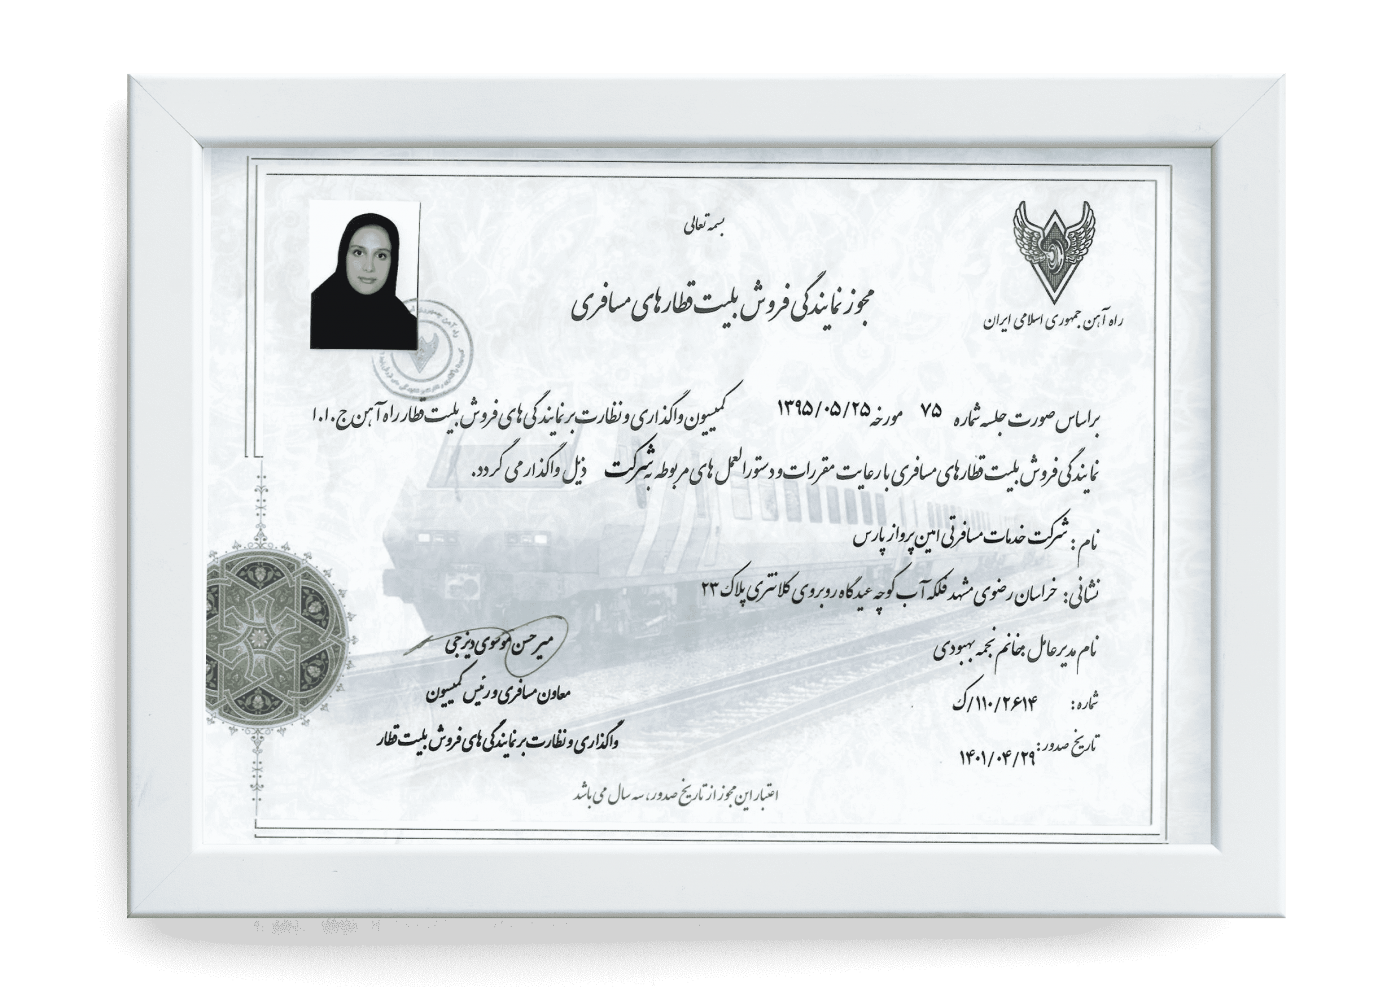 بسمه تعالی
راه آهن جمهوری اسلامی ایران
مجوز نمایندگی فروش بلیت قطارهای مسافری
براساس صورت جلسه شماره ۷۵ مورخه ۱۳۹۵/۰۵/۲۵ کمیسیون واگذاری و نظارت بر نمایندگی های فروش بلیت قطار راه آهن ج.ا.ا
نمایندگی فروش بلیت قطارهای مسافری با رعایت مقررات و دستورالعمل های مربوطه به شرکت ذیل واگذار می گردد.
نام : شرکت خدمات مسافرتی امین پرواز پارس
نشانی: خراسان رضوی مشهد فلکه آب کوچه عیدگاه روبروی کلانتری پلاک ۲۳
نام مدیرعامل :خانم نجمه بهبودی
شماره: ۱۱۰/۲۶۱۴/ک
تاریخ صدور: ۱۴۰۱/۰۴/۲۹
میرحسن موسوی دیزجی
معاون مسافری و رئیس کمیسیون
واگذاری و نظارت بر نمایندگی های فروش بلیت قطار
اعتبار این مجوز از تاریخ صدور، سه سال می باشد